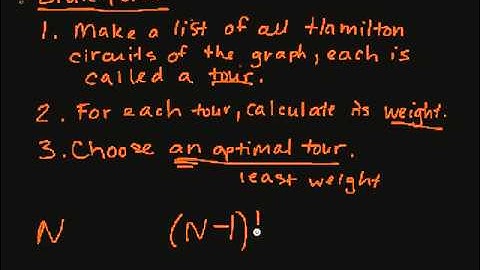 1. Make a list of all Hamilton
circuits of the graph, each is
called a tour.
2. For each tour, calculate its weight.
3. Choose an optimal tour.
least weight
N (N-1)!